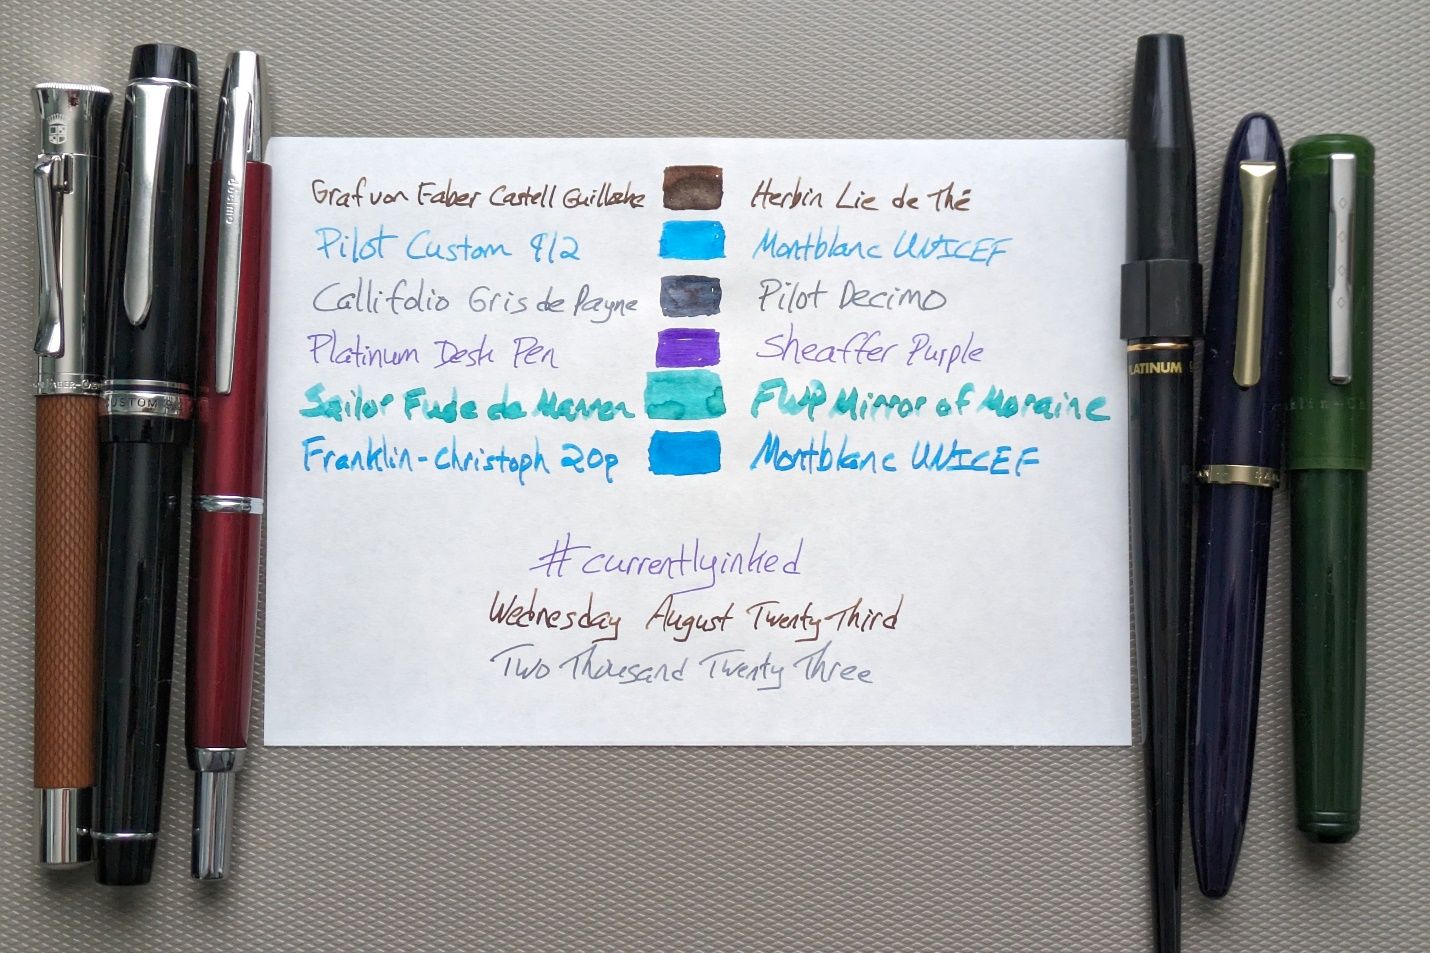 Graf von Faber Castell Guilloche Herbin Lie de Thé
Pilot Custom 912 Montblanc UNICEF
Callifolio Gris de Payne Pilot Decimo
Platinum Desk Pen Sheaffer Purple
Sailor Fude de Mannen FWP Mirror of Moraine
Franklin-Christoph 20p Montblanc UNICEF
#currentlyinked
Wednesday August Twenty-Third
Two Thousand Twenty Three
decimo
CUSTOM
PLATINUM